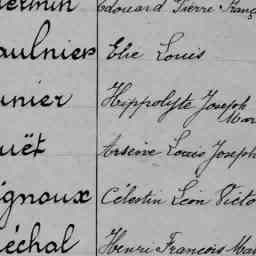 Edouard Pierre
aulnier Elie Louis
nier Hippolyte Joseph
Mar
uët Arsène Louis Joseph
ignoux Célestin Léon Victo
échal Henri François Mar